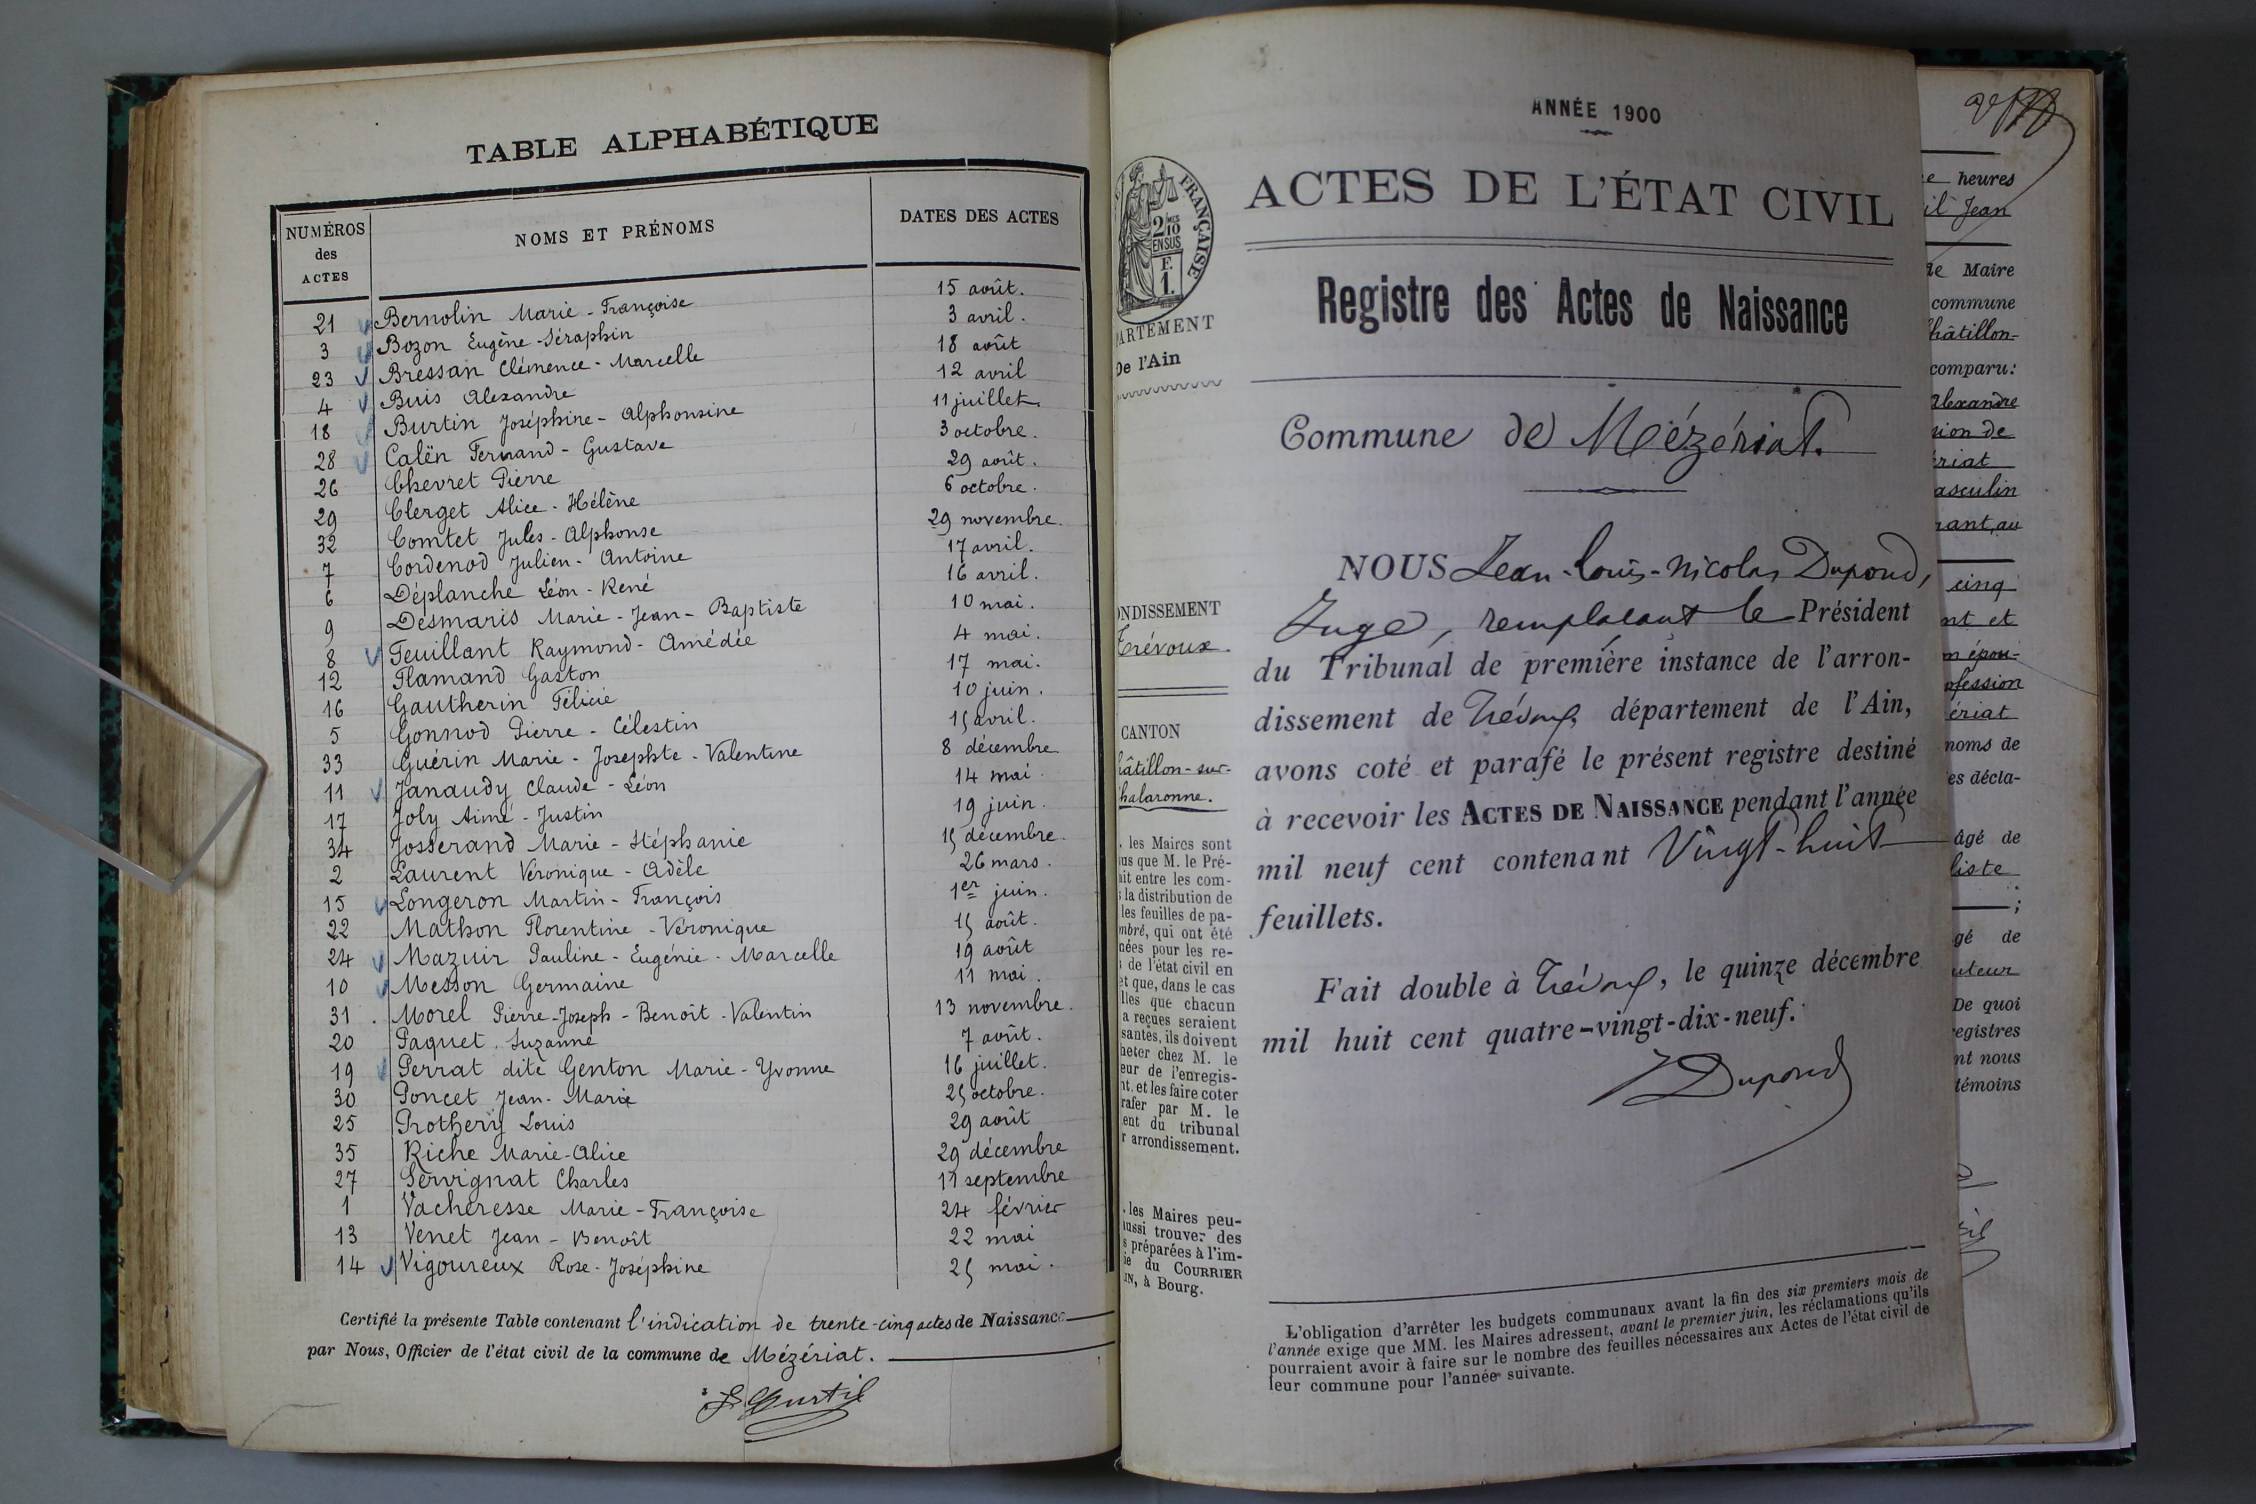 TABLE ALPHABÉTIQUE
NUMÉROS des ACTES NOMS ET PRÉNOMS DATES DES ACTES
21 Bernolin Marie-Françoise 15 août.
3 Bozon Eugène-Séraphin 3 avril.
23 Bressan Clémence-Marcelle 18 août
4 Buis Alexandre 12 avril
18 Burtin Joséphine-Alphonsine 11 juillet.
28 Calën Fernand-Gustave 3 octobre.
26 Chevret Pierre 29 août.
29 Clerget Alice-Hélène 6 octobre.
32 Comtet Jules-Alphonse 29 novembre.
7 Cordenod Julien-Antoine 17 avril.
6 Déplanche Léon-René 16 avril.
9 Desmaris Marie-Jean-Baptiste 10 mai.
8 Feuillant Raymond-Amédée 4 mai.
12 Flamand Gaston 17 mai.
16 Gautherin Félicie 10 juin.
5 Gonnod Pierre-Célestin 15 avril.
33 Guérin Marie-Josephte-Valentine 8 décembre
11 Janaudy Claude-Léon 14 mai.
17 Joly Aimé-Justin 19 juin.
34 Josserand Marie-Stéphanie 15 décembre.
2 Laurent Véronique-Adèle 26 mars.
15 Longeron Martin-François 1er juin.
22 Mathon Florentine-Véronique 15 août.
24 Mazuir Pauline-Eugénie-Marcelle 19 août
10 Messon Germaine 11 mai.
31 Morel Pierre-Joseph-Benoît-Valentin 13 novembre.
20 Paquet Suzanne 7 août.
19 Perrat dite Genton Marie-Yvonne 16 juillet.
30 Poncet Jean-Marie 25 octobre.
25 Prothery Louis 29 août
35 Riche Marie-Alice 29 décembre
27 Servignat Charles 11 septembre
1 Vacheresse Marie-Françoise 24 février
13 Venet Jean-Benoît 22 mai
14 Vigoureux Rose-Joséphine 25 mai.
Certifié la présente Table contenant l'indication de trente-cinq actes de Naissance
par Nous, Officier de l'état civil de la commune de Mézériat.
ANNÉE 1900
FRANÇAISE
2 MES 10 EN SUS
F. 1.
PARTEMENT
De l'Ain
ACTES DE L'ÉTAT CIVIL
Registre des Actes de Naissance
Commune de Mézériat.
NOUS Jean-Louis-Nicolas Dupond,
Juge, remplacant le Président
du Tribunal de première instance de l'arron-
dissement de Trévoux, département de l'Ain,
avons coté et parafé le présent registre destiné
à recevoir les ACTES DE NAISSANCE pendant l'année
mil neuf cent contenant Vingt-huit
feuillets.
Fait double à Trévoux, le quinze décembre
mil huit cent quatre-vingt-dix-neuf.
Dupond
ONDISSEMENT
Trévoux.
CANTON
hâtillon-sur-
halaronne.
. les Maires sont
us que M. le Pré-
ait entre les com-
s la distribution de
les feuilles de pa-
mbré, qui ont été
nées pour les re-
s de l'état civil en
et que, dans le cas
lles que chacun
a reçues seraient
santes, ils doivent
heter chez M. le
eur de l'enregis-
nt. et les faire coter
rafer par M. le
ent du tribunal
r arrondissement.
. les Maires peu-
aussi trouver des
s préparées à l'im-
ie du COURRIER
IN, à Bourg.
L'obligation d'arrêter les budgets communaux avant la fin des six premiers mois de
l'année exige que MM. les Maires adressent, avant le premier juin, les réclamations qu'ils
pourraient avoir à faire sur le nombre des feuilles nécessaires aux Actes de l'état civil de
leur commune pour l'année suivante.
e heures
il Jean
de Maire
commune
hâtillon-
comparu:
Alexandre
sion de
ériat
asculin
rant, au
cinq
nt et
n épou-
ofession
ériat
noms de
es décla-
âgé de
liste
;
gé de
uteur
De quoi
registres
nt nous
témoins